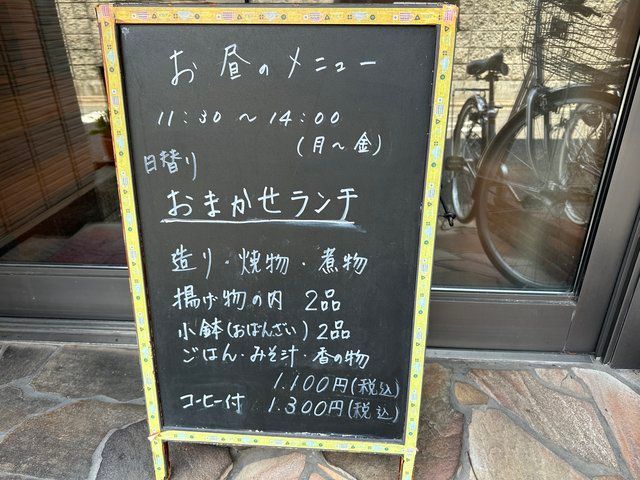 お昼のメニュー
11:30 ～ 14:00
(月～金)
日替り
おまかせランチ
造り・焼物・煮物
揚げ物の内 2品
小鉢(おばんざい) 2品
ごはん・みそ汁・香の物
1.100円(税込)
コーヒー付 1.300円(税込)